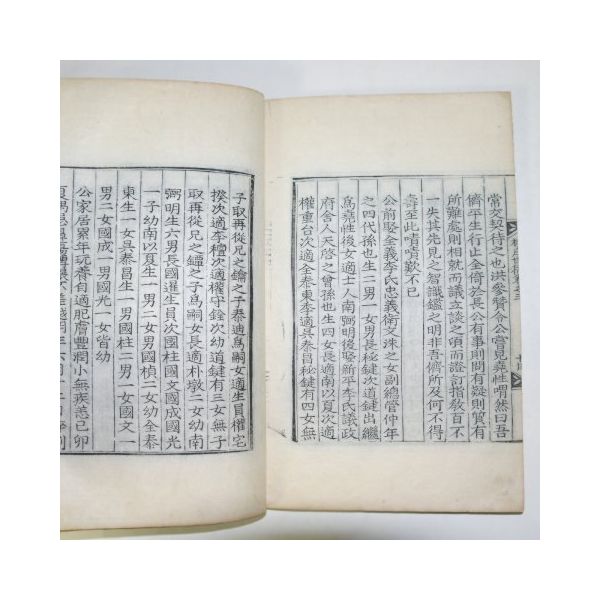 常交契待之也洪參贊令公嘗見堯性喟然曰吾
儕平生行止全倚於長公有事則問有疑則質有
所難處則相就而議立談之頃而證訂指教百不
一失其先見之智識鑑之明非吾儕所及何不得
壽至此嘖嘖歎不已
公前娶全義李氏忠義衛文洙之女副總管仲年
之四代孫也生二男一女男長秘鍵次道鍵出繼
爲堯性後女適士人南弼明後娶新平李氏議政
府舍人天啓之曾孫也生四女長適南以夏次適
權重台次適全泰東李適吳泰昌秘鍵有四女無
子取再從兄之鑰之子泰迪爲嗣女適生員權宅
揆次適李檀次適權守銓次幼道鍵有三女無子
取再從兄之鐔之子爲嗣女長適朴墩二女幼南
弼明生六男長國暹生員次國柱國文國成國光
一子幼南以夏生一男二女男國楨二女幼全泰
東生一女吳泰昌生一男國柱二男一女國文一
男二女國成一男國光一女皆幼
公家居累年玩養自適肥膚豐潤小無疾恙己卯